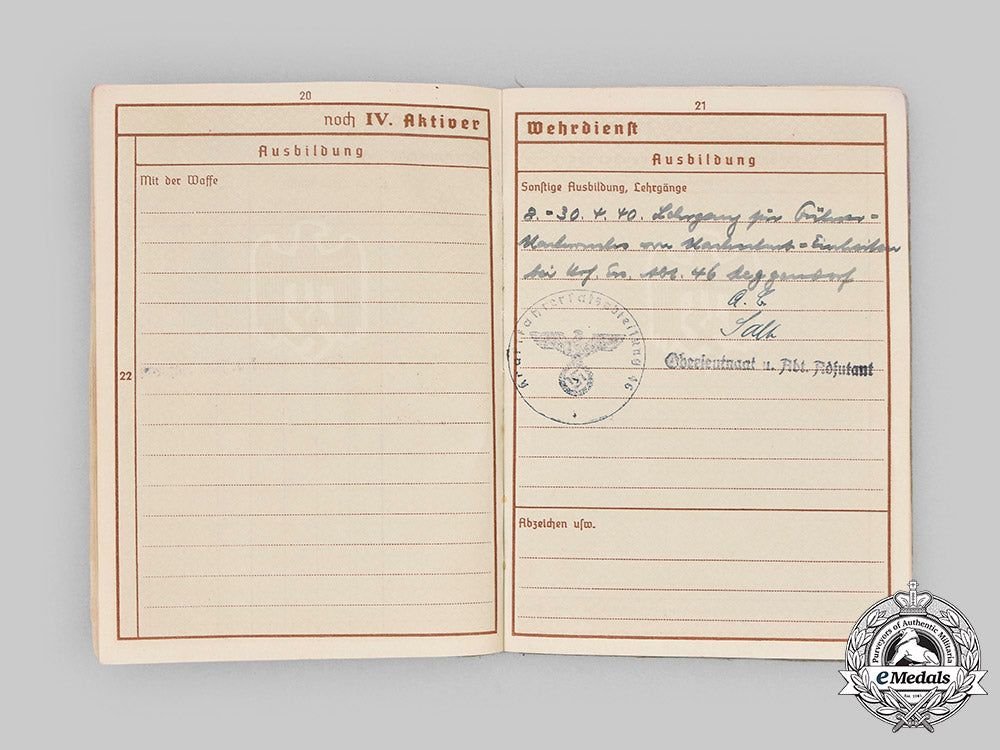 20
noch IV. Aktiver
Ausbildung
Mit der Waffe
22
21
Wehrdienst
Ausbildung
Sonstige Ausbildung, Lehrgänge
8.-30.4.40. Lehrgang für
von Einheiten
bei Krf. Ers. Abt. 46 Deggendorf
Kraftfahrersatzabteilung 46
Oberleutnant u. Abt. Adjutant
Abzeichen usw.
Purveyors of Authentic Militaria
eMedals